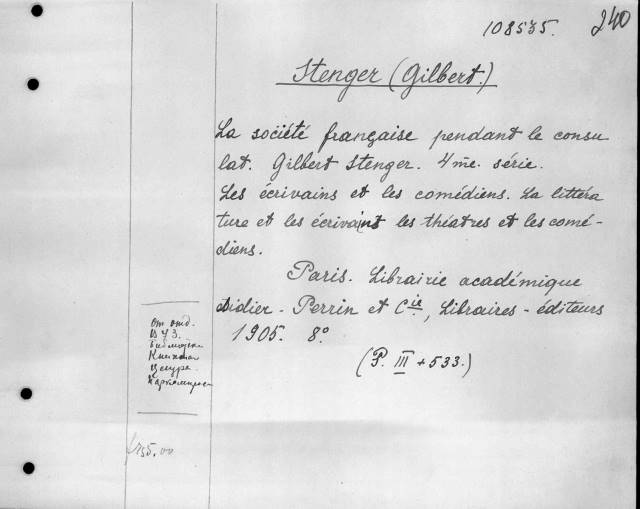 108535. 240
Stenger (Gilbert.)
La société française pendant le consu
lat. Gilbert Stenger. 4me. série.
Les écrivains et les comédiens. La littéra
ture et les écrivains les théatres et les comé-
diens.
Paris. Librairie académique
Didier - Perrin et Cie, Libraires - éditeurs
1905. 8º
(P. III + 533.)
От отд.
ВУЗ.
Библиотек
Книжн
Центра
Наркомпрос